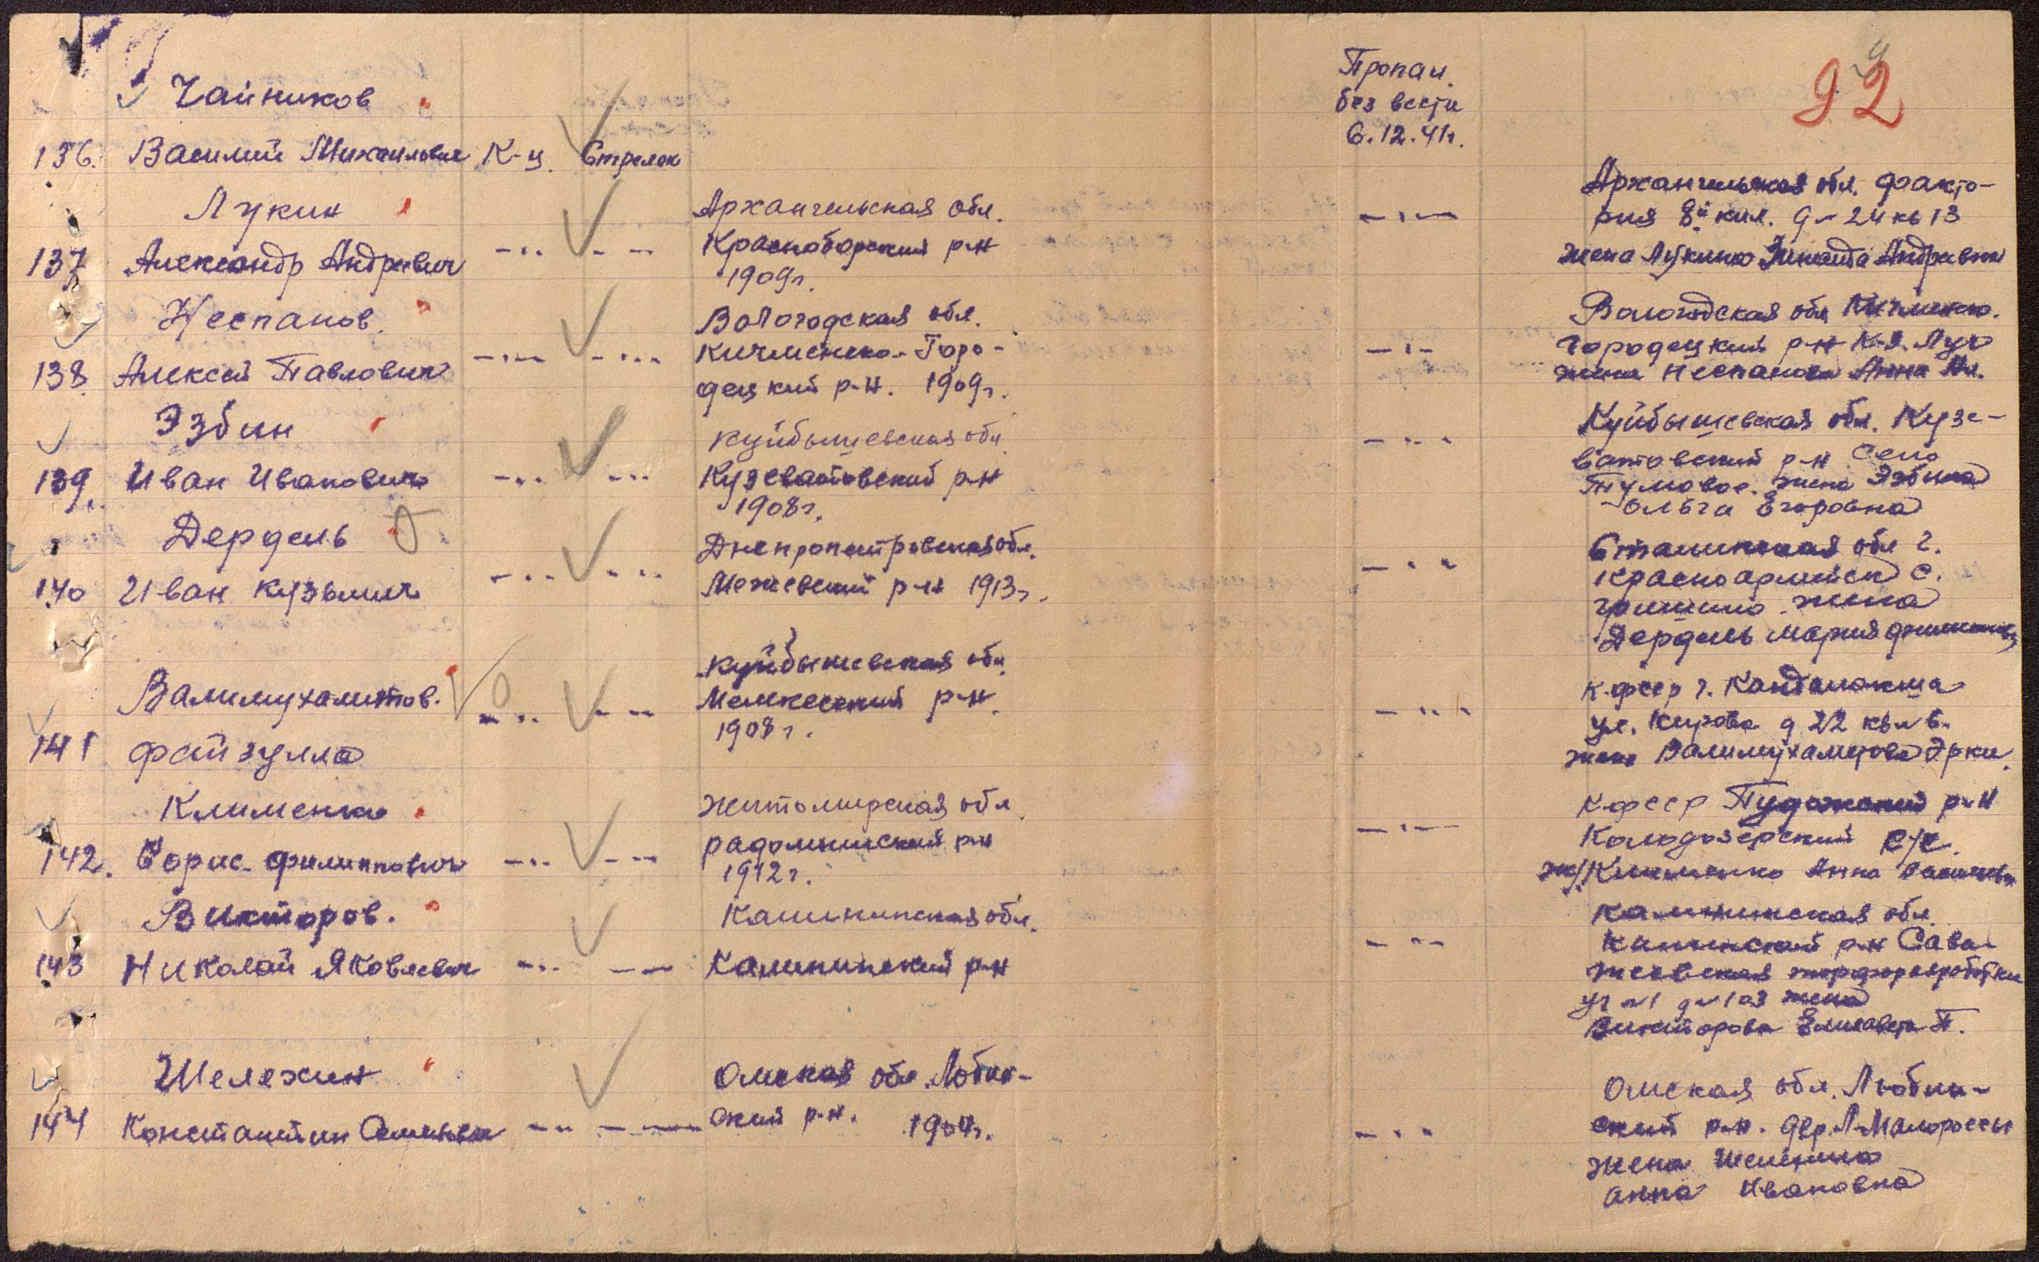 92
Чайников
136. Василий Михайлович К-ц. Стрелок
Пропал
без вести
6.12.41г.
Лукин
137 Александр Андреевич -"- -"-
Архангельская обл.
Красноборский р-н
1909г.
-"-
Архангельская обл. факто-
рия 8й кил. д-24 кв 13
жена Лукина Зинаида Андреевна
Неспанов.
138 Алексей Павлович -"- -"-
Вологодская обл.
Кичменско-Горо-
децкий р-н. 1909г.
-"-
Вологодская обл Кичменко.
Городецкий р-н К-з. Луч
жена Неспанова Анна Ал.
Эзбин
139. Иван Иванович -"- -"-
Куйбышевская обл
Кузеватовский р-н
1908г.
-"-
Куйбышевская обл. Кузе-
ватовский р-н Село
жена Эзбина
Ольга Егоровна
Дердель
140 Иван Кузьмич -"- -"-
Днепропетровская обл.
Межевский р-н 1913г.
-"-
Сталинская обл г.
Красноармейск с.
Гришино. жена
Дердель Мария
Валимухаметов.
141 Файзулла -"- -"-
Куйбышевская обл.
Мелекесский р-н.
1908г.
-"-
К.фсср г. Кандалакша
ул. Кирова д 22 кв 6.
жена Валимухаметова
Клименко
142. Борис Филиппович -"- -"-
Житомирская обл
радомышский р-н
1912г.
-"-
К.фсср Пудожский р-н
Колодозерский с/с.
ж/Клименко Анна
Викторов.
143 Николай Яковлевич -"- -"-
Калининская обл.
Калининский р-н
-"-
Калининская обл.
Калининский р-н Сава-
тьевская торфоразработки
уч №1 д №103 жена
Викторова Елизавета П.
Шелехин
144 Константин Семенович -"- -"-
Омская обл. Любин-
ский р-н. 1904г.
-"-
Омская обл. Любин-
ский р-н. дер. Л-Малороссы
жена Шелехина
Анна Ивановна